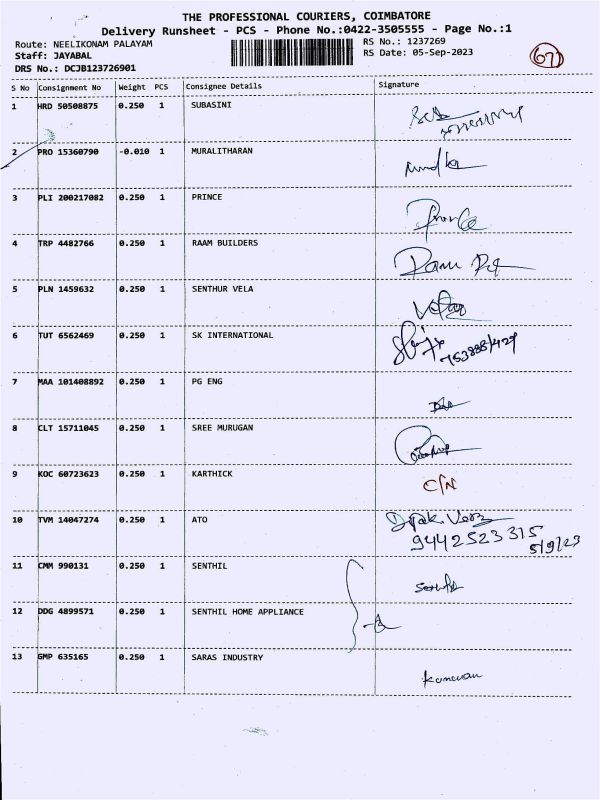 THE PROFESSIONAL COURIERS, COIMBATORE
Delivery Runsheet - PCS - Phone No.:0422-3505555 - Page No.:1
Route: NEELIKONAM PALAYAM
Staff: JAYABAL
DRS No.: DCJB123726901
RS No.: 1237269
RS Date: 05-Sep-2023
67
S No Consignment No Weight PCS Consignee Details Signature
1 HRD 50508875 0.250 1 SUBASINI
2 PRO 15360790 -0.010 1 MURALITHARAN
3 PLI 200217082 0.250 1 PRINCE
4 TRP 4482766 0.250 1 RAAM BUILDERS
5 PLN 1459632 0.250 1 SENTHUR VELA
6 TUT 6562469 0.250 1 SK INTERNATIONAL
7 MAA 101408892 0.250 1 PG ENG
8 CLT 15711045 0.250 1 SREE MURUGAN
9 KOC 60723623 0.250 1 KARTHICK C/N
10 TVM 14047274 0.250 1 ATO
9442523315
5/9/23
11 CMM 990131 0.250 1 SENTHIL
12 DDG 4899571 0.250 1 SENTHIL HOME APPLIANCE
13 GMP 635165 0.250 1 SARAS INDUSTRY